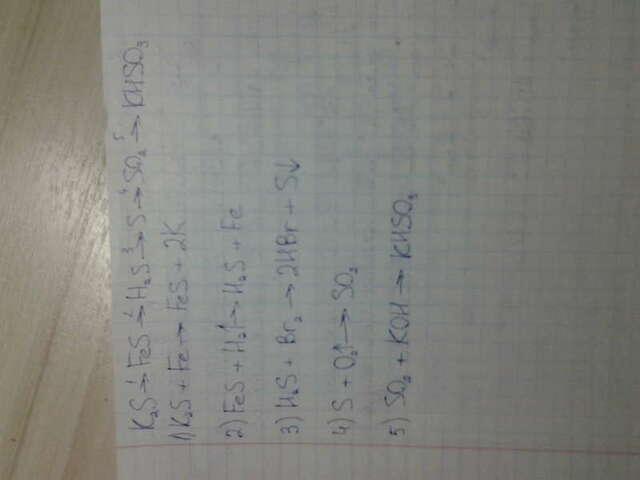 K₂S →¹ FeS →² H₂S →³ S →⁴ SO₂ →⁵ KHSO₃
1) K₂S + Fe → FeS + 2K
2) FeS + H₂↑ → H₂S + Fe
3) H₂S + Br₂ → 2HBr + S↓
4) S + O₂↑ → SO₂
5) SO₂ + KOH → KHSO₃